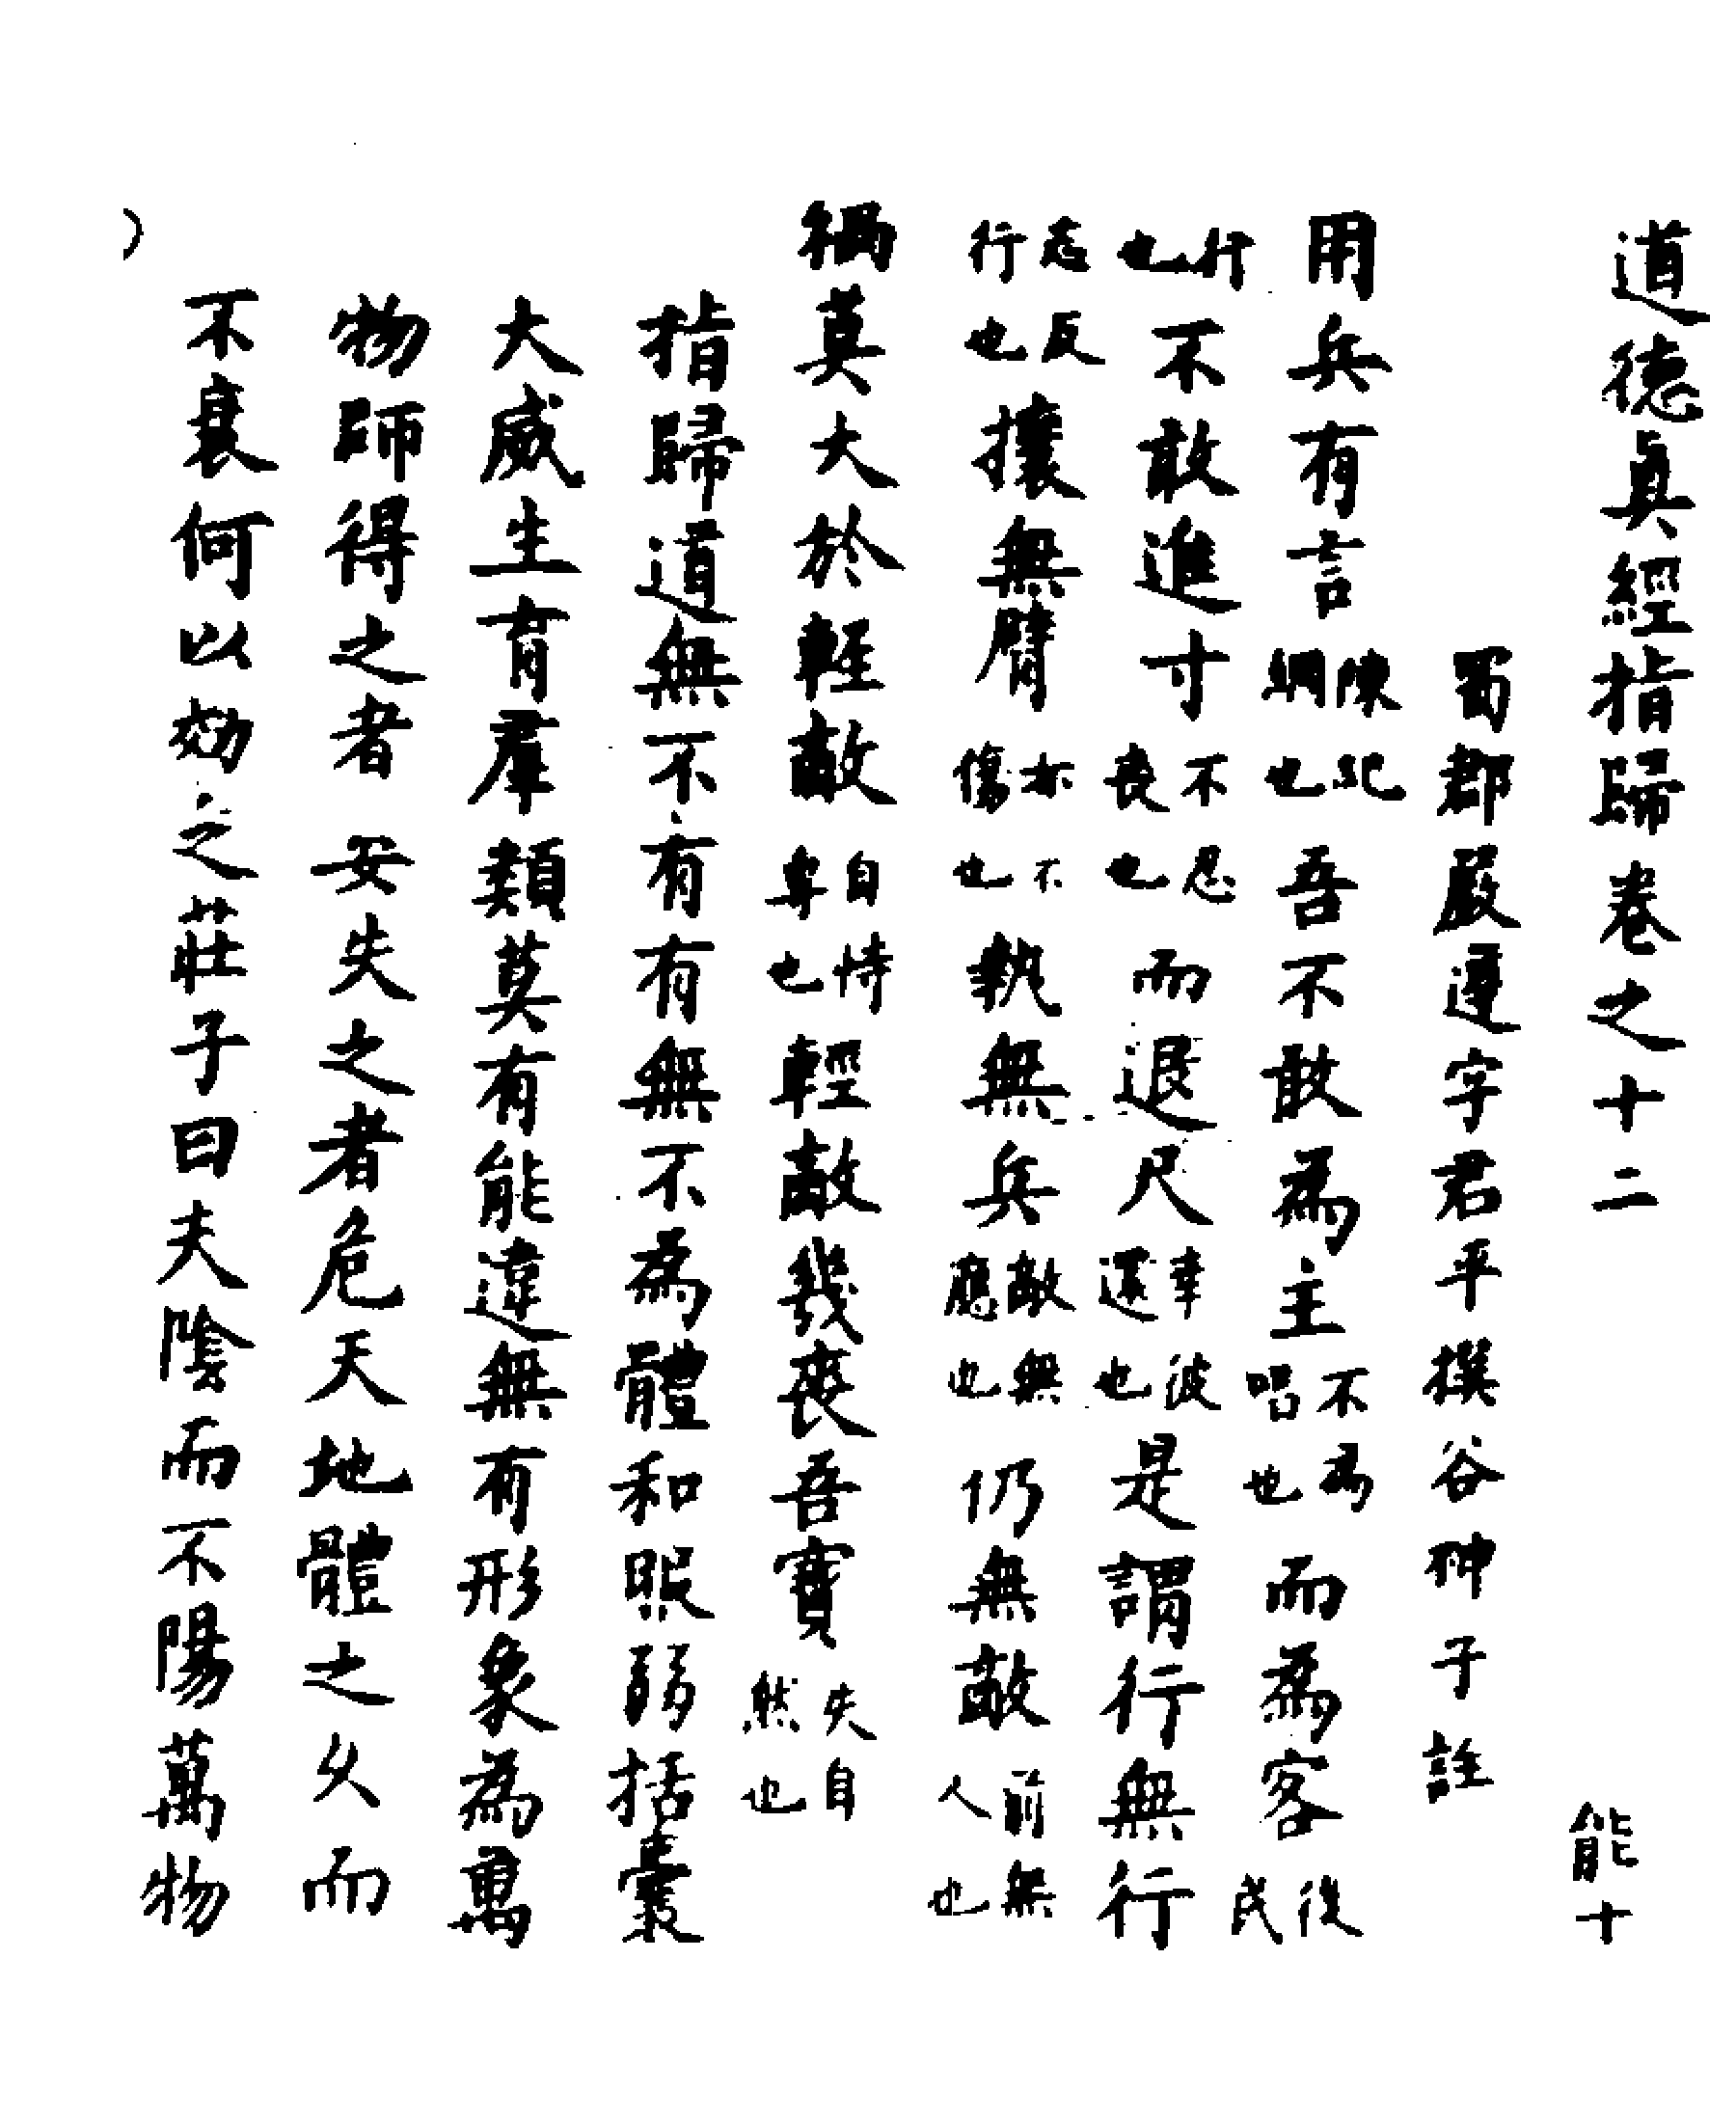 道德眞經指歸卷之十二 能十
蜀郡嚴遵字君平撰谷神子註
用兵有言陳紀綱也吾不敢為主不為唱也而為客後民
行也不敢進寸不忍喪也而退尺幸彼還也是謂行無行
志反行也攘無臂亦不傷也執無兵敵無應也仍無敵前無人也
禍莫大於輕敵自恃專也輕敵幾喪吾寶失自然也
指歸道無不有有無不為體和照弱括囊
大威生育羣類莫有能違無有形象為萬
物師得之者安失之者危天地體之久而
不衰何以効之莊子曰夫陰而不陽萬物